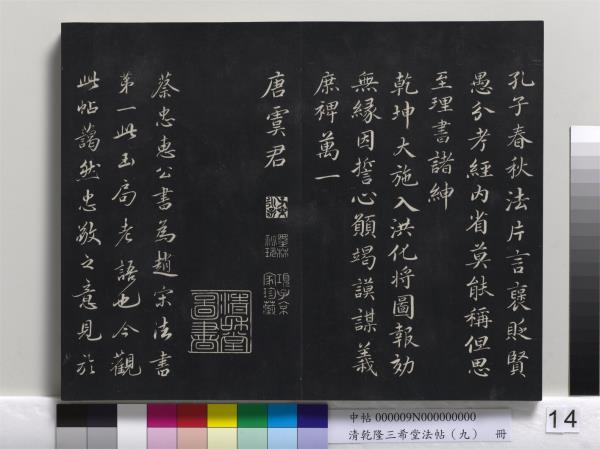 孔子春秋法片言襃貶賢
愚分考經內省莫能稱但思
至理書諸紳
乾坤大施入洪化将圖報効
無縁因誓心願竭謨謀義
庶裨萬一
唐虞君
墨林祕玩
項子京家珍藏
蔡忠惠公書為趙宋法書
第一此玉局老語也今觀
此帖藹然忠敬之意見於
中帖 000009N000000000
清乾隆三希堂法帖（九） 冊
14